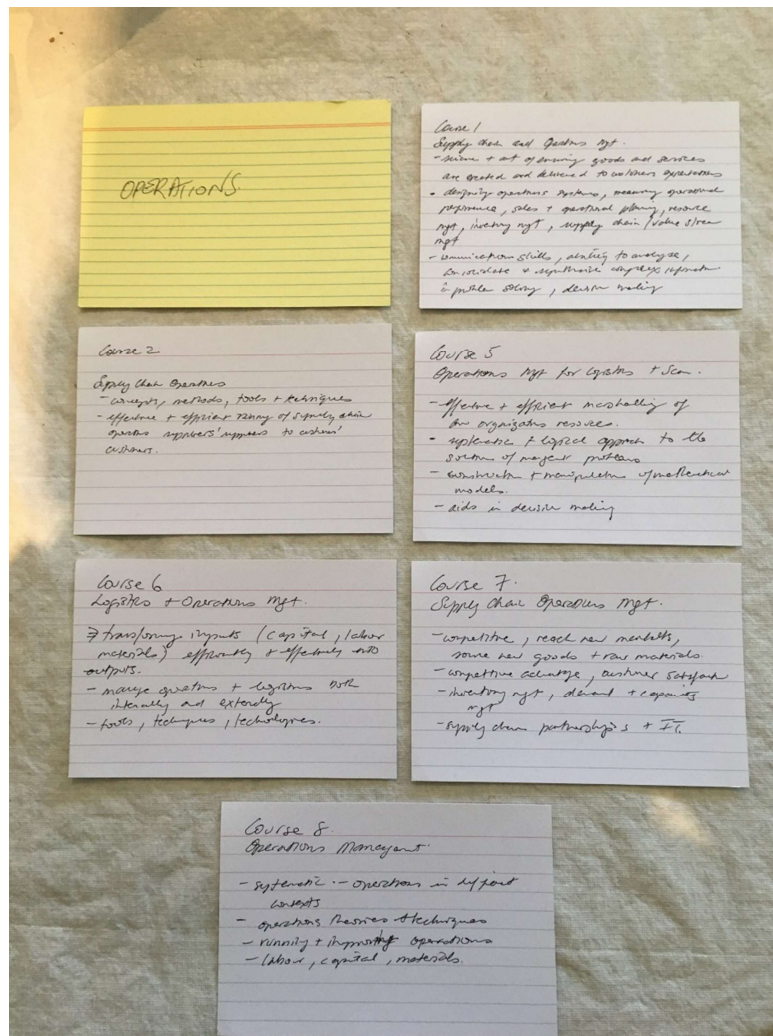 OPERATIONS.
Course 1
Supply Chain and Operations Mgt.
- science + art of ensuring goods and services
are created and delivered to customers
- designing operations systems, measuring operational
performance, sales + operational planning, resource
mgt, inventory mgt, supply chain / value stream
mgt
- communication skills, ability to analyse,
consolidate + synthesise complex information
in problem solving, decision making
Course 2
Supply Chain Operations
- concepts, methods, tools + techniques
- effective + efficient running of supply chain
operations suppliers' suppliers to customers'
customers.
Course 5
Operations Mgt for Logistics + Scm.
- effective + efficient marshalling of
an organizations resources.
- systematic + logical approach to the
solution of problems
- construction + manipulation of mathematical
models.
- aids in decision making
Course 6
Logistics + Operations Mgt.
transforming inputs (capital, labor
materials) efficiently + effectively into
outputs.
- manage operations + logistics both
internally and externally
- tools, techniques, technologies.
Course 7.
Supply Chain Operations Mgt.
- competitive, reach new markets,
source new goods + raw materials.
- competitive advantage, customer satisfaction
- inventory mgt, demand + capacity
mgt
- supply chain partnerships + IT.
Course 8.
Operations Management.
- systematic - operations in different
contexts
- operations theories + techniques
- running + improving operations
- labour, capital, materials.